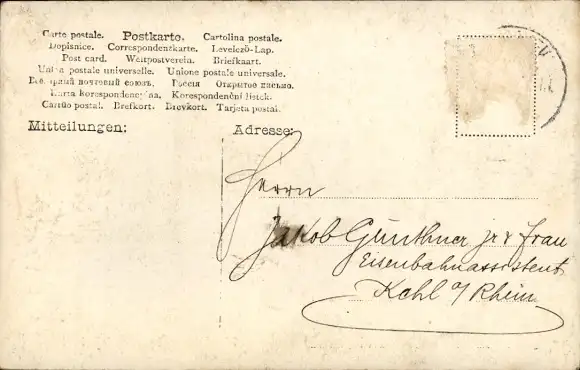 Carte postale. Postkarte. Cartolina postale.
Dopisnice. Correspondenzkarte. Levelező-Lap.
Post card. Weltpostverein. Briefkaart.
Union postale universelle. Unione postale universale.
Всемірный почтовый союзъ. Россія Открытое письмо.
Karta korespondencyjna. Korespondenční lístek.
Cartão postal. Brefkort. Brevkort. Tarjeta postal.
Mitteilungen:
Adresse:
Herrn
Jakob Günthner jr & Frau
Eisenbahnassistent
Kehl a/Rhein